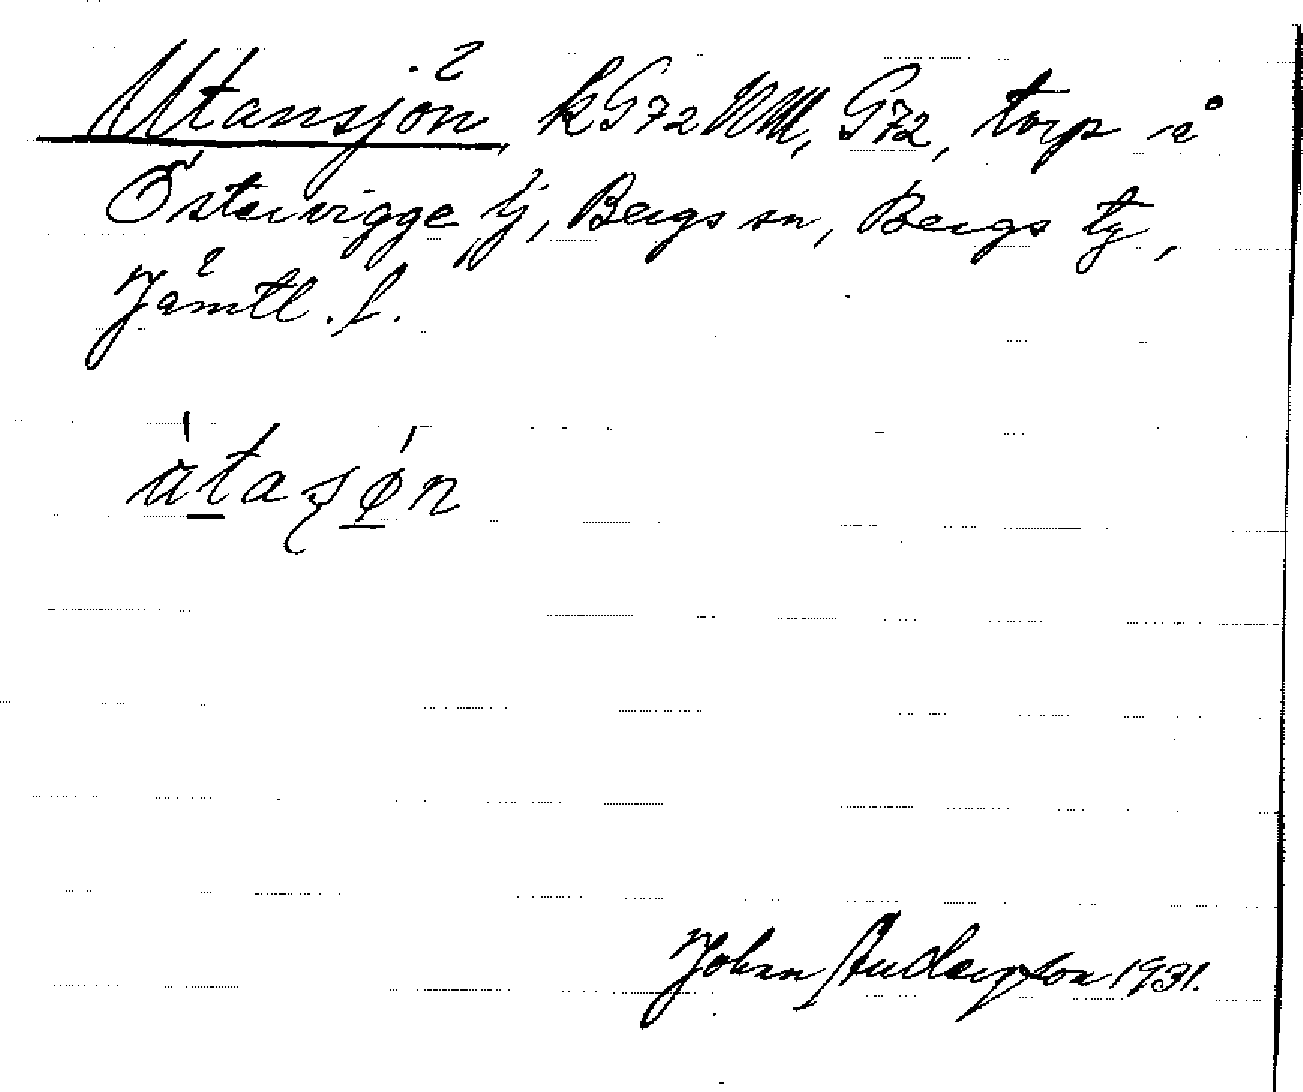 Utansjön kG72NM, G72, torp i
Östervigge by, Bergs sn, Bergs tg,
Jämtl. l.
ùtaʂøn
Johan Andersson 1931.